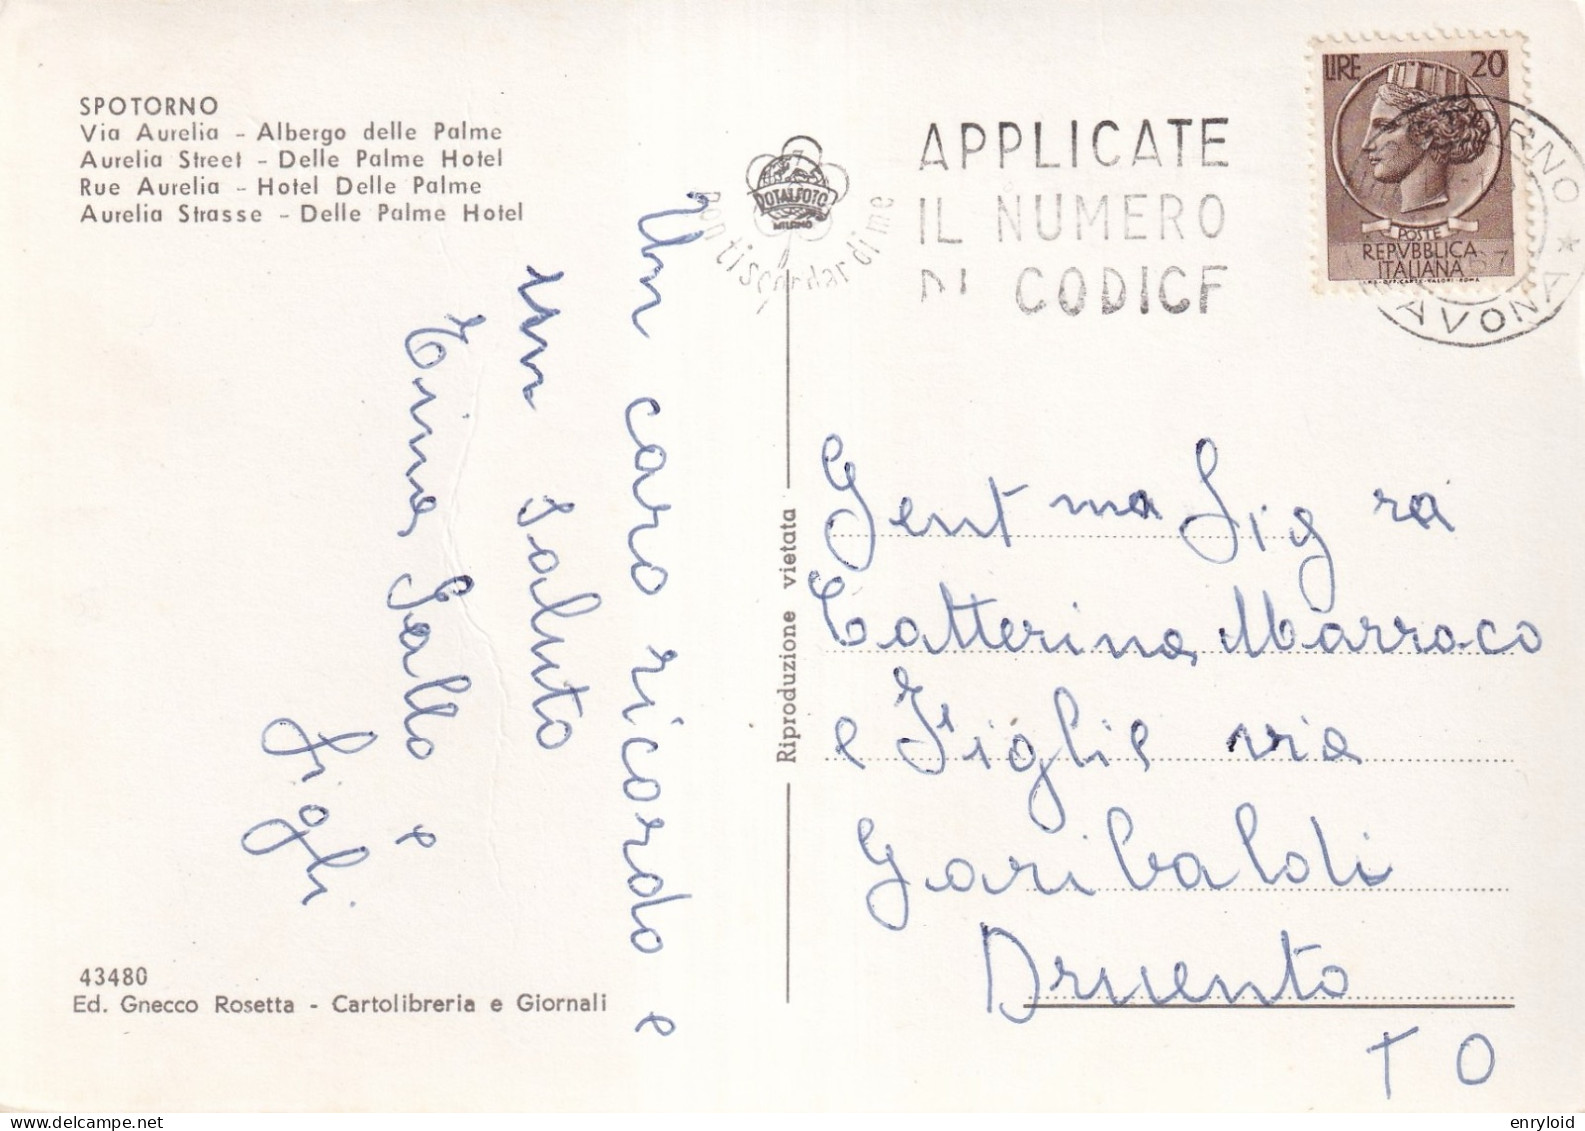 SPOTORNO
Via Aurelia - Albergo delle Palme
Aurelia Street - Delle Palme Hotel
Rue Aurelia - Hotel Delle Palme
Aurelia Strasse - Delle Palme Hotel
Un caro ricordo e
un saluto
Tina Gallo e
figli
43480
Ed. Gnecco Rosetta - Cartolibreria e Giornali
Reproduzione vietata
ROTALFOTO
MILANO
non ti scordar di me
APPLICATE
IL NUMERO
DI CODICE
LIRE 20
POSTE
REPVBBLICA
ITALIANA
SAVONA
Gent ma Sig ra
Catterina Marroco
e Figlie via
Garibaldi
Druento
TO
enryloid